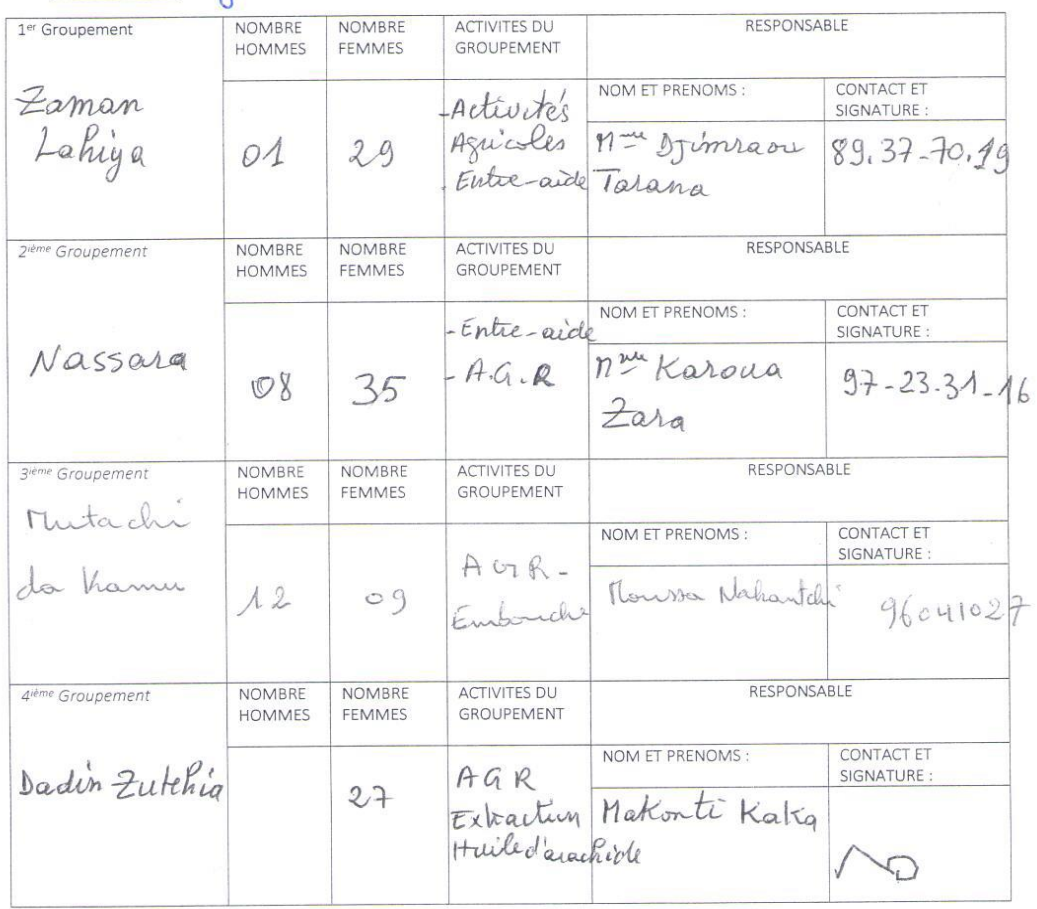 1er Groupement
NOMBRE HOMMES
NOMBRE FEMMES
ACTIVITES DU GROUPEMENT
RESPONSABLE
Zaman
Lahiya
01
29
-Activités
Agricoles
- Entre-aide
NOM ET PRENOMS :
Mme Djimraou
Tarana
CONTACT ET SIGNATURE :
89.37-70.19
2ième Groupement
NOMBRE HOMMES
NOMBRE FEMMES
ACTIVITES DU GROUPEMENT
RESPONSABLE
Nassara
08
35
- Entre-aide
- A.G.R
NOM ET PRENOMS :
Mme Karoua
Zara
CONTACT ET SIGNATURE :
97-23-31-16
3ième Groupement
NOMBRE HOMMES
NOMBRE FEMMES
ACTIVITES DU GROUPEMENT
RESPONSABLE
Mutachi
da Kamu
12
09
AGR-
Embouche
NOM ET PRENOMS :
Moussa Nahantchi
CONTACT ET SIGNATURE :
96041027
4ième Groupement
NOMBRE HOMMES
NOMBRE FEMMES
ACTIVITES DU GROUPEMENT
RESPONSABLE
Dadin Zutchia
27
AGR
Extraction
Huile d'arachide
NOM ET PRENOMS :
Makonti Kaka
CONTACT ET SIGNATURE :